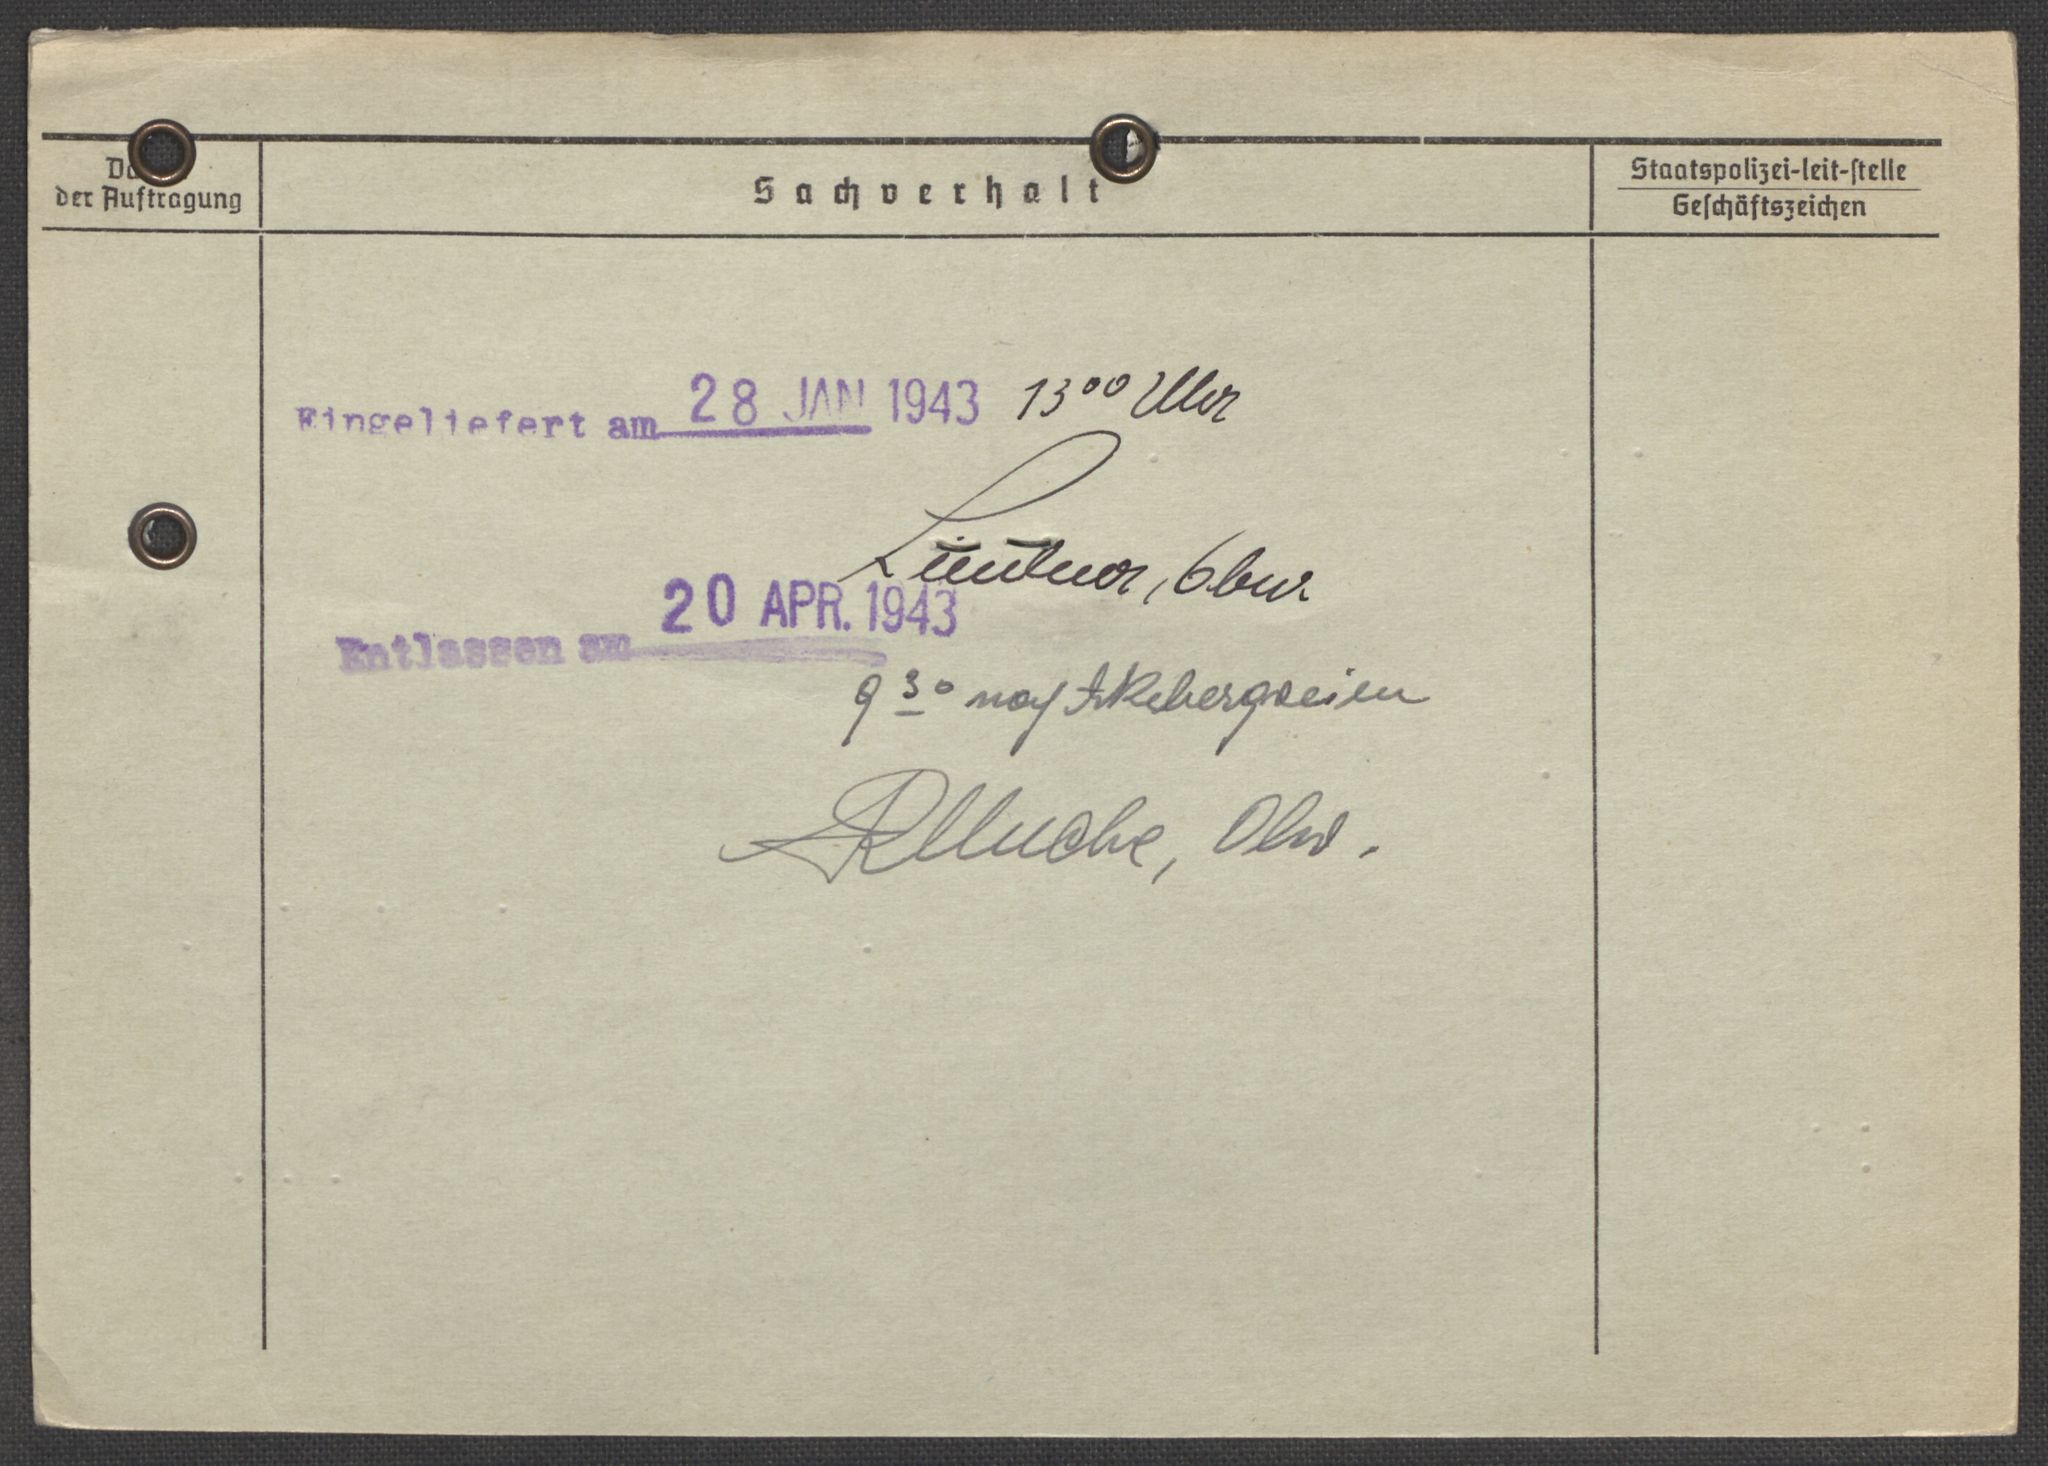 der Auftragung
Sachverhalt
Staatspolizei-leit-stelle
Geschäftszeichen
Eingeliefert am 28 JAN 1943 13⁰⁰ Uhr
Entlassen am 20 APR. 1943
9³⁰ nach Akebergveien
RMuche, Obw.